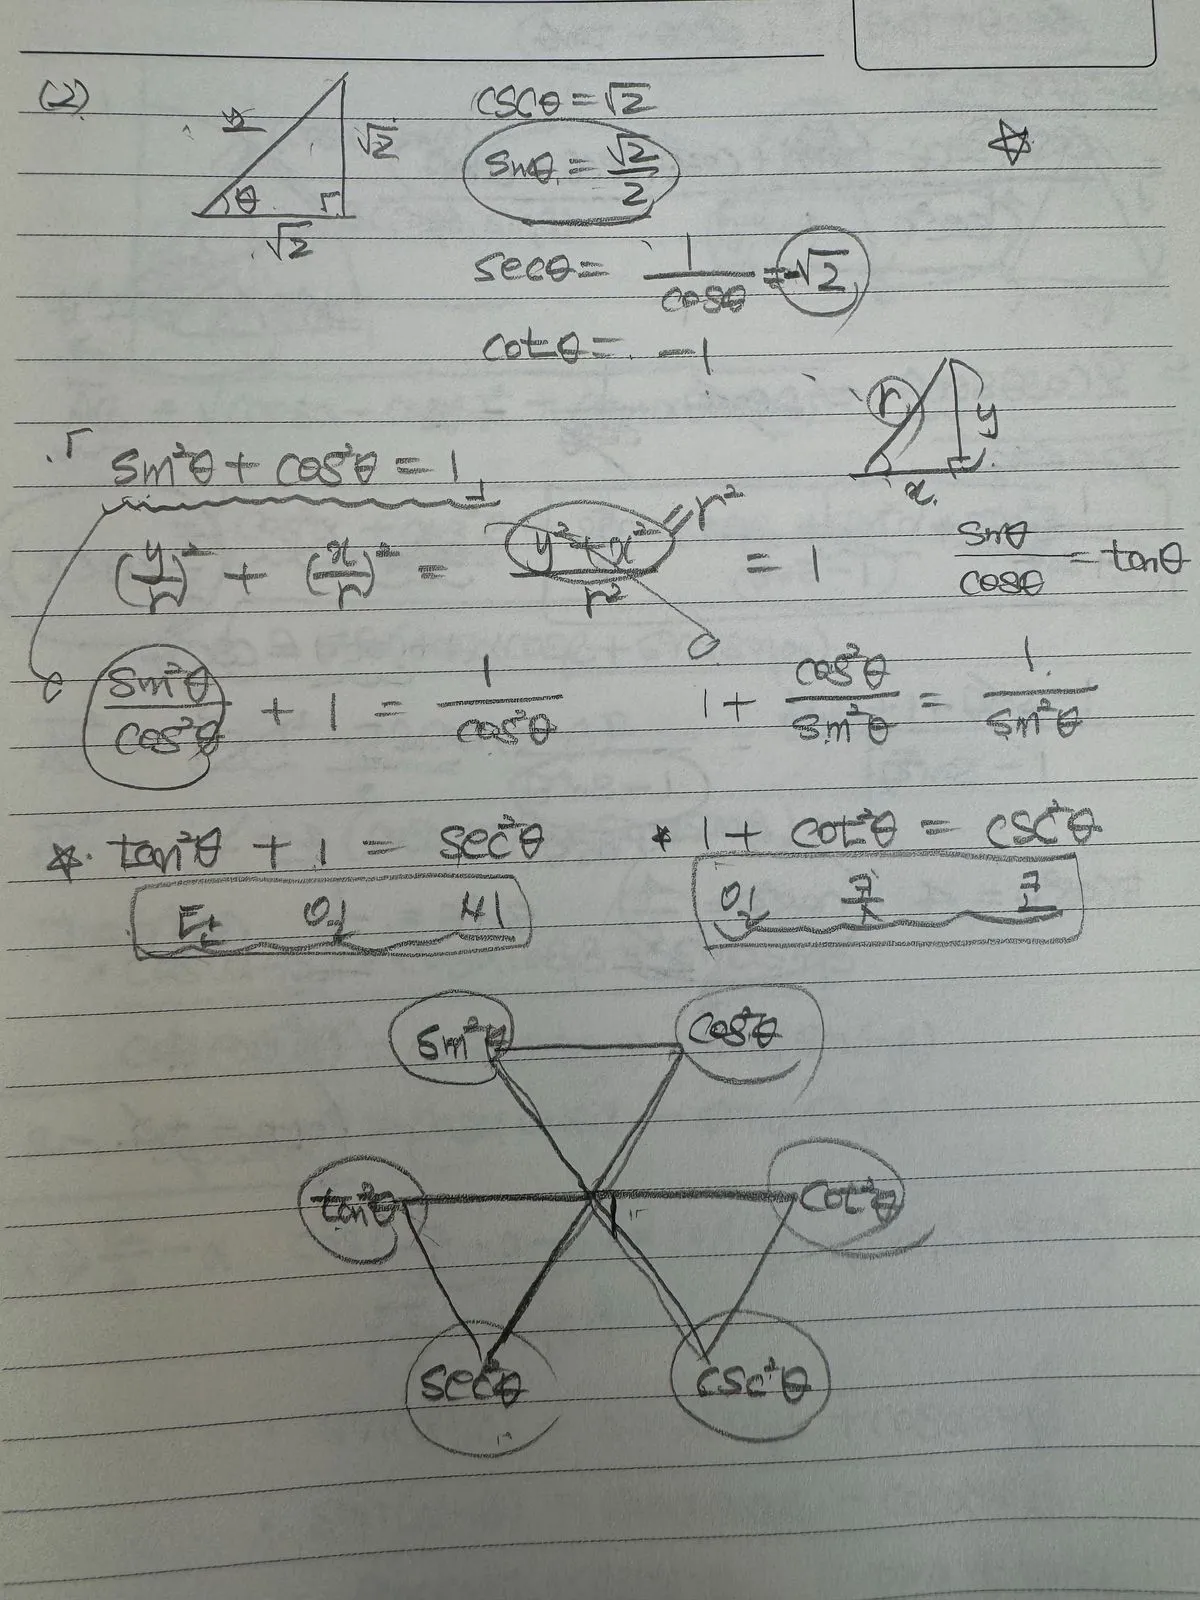 (2)
2
√2
θ
√2
cscθ = √2
sinθ = √2/2
secθ = 1/cosθ = -√2
cotθ = -1
r
y
x
「sin²θ + cos²θ = 1」
(y/r)² + (x/r)² = (y² + x²)/r² = 1
= r²
sinθ/cosθ = tanθ
sin²θ/cos²θ + 1 = 1/cos²θ
1 + cos²θ/sin²θ = 1/sin²θ
☆. tan²θ + 1 = sec²θ
* 1 + cot²θ = csc²θ
탄 일 시
일 코 코
sin²θ
cos²θ
tan²θ
cot²θ
sec²θ
csc²θ